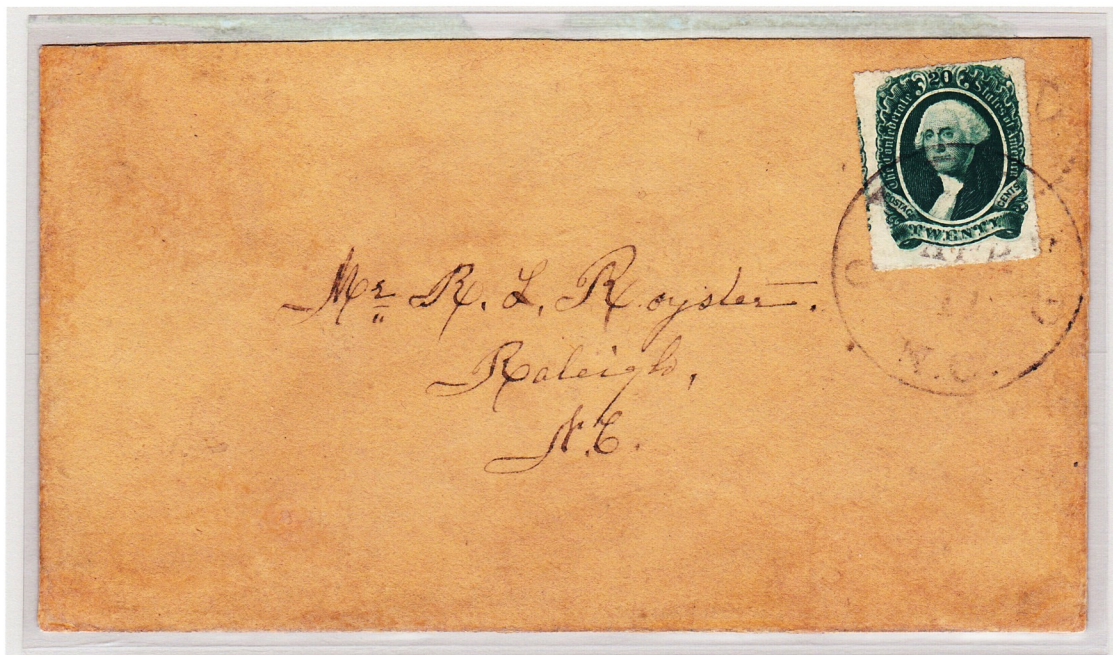 20
The Confederate States of America
POSTAGE CENTS
TWENTY
11
N.C.
Mr. R. L. Royster.
Raleigh,
N.C.